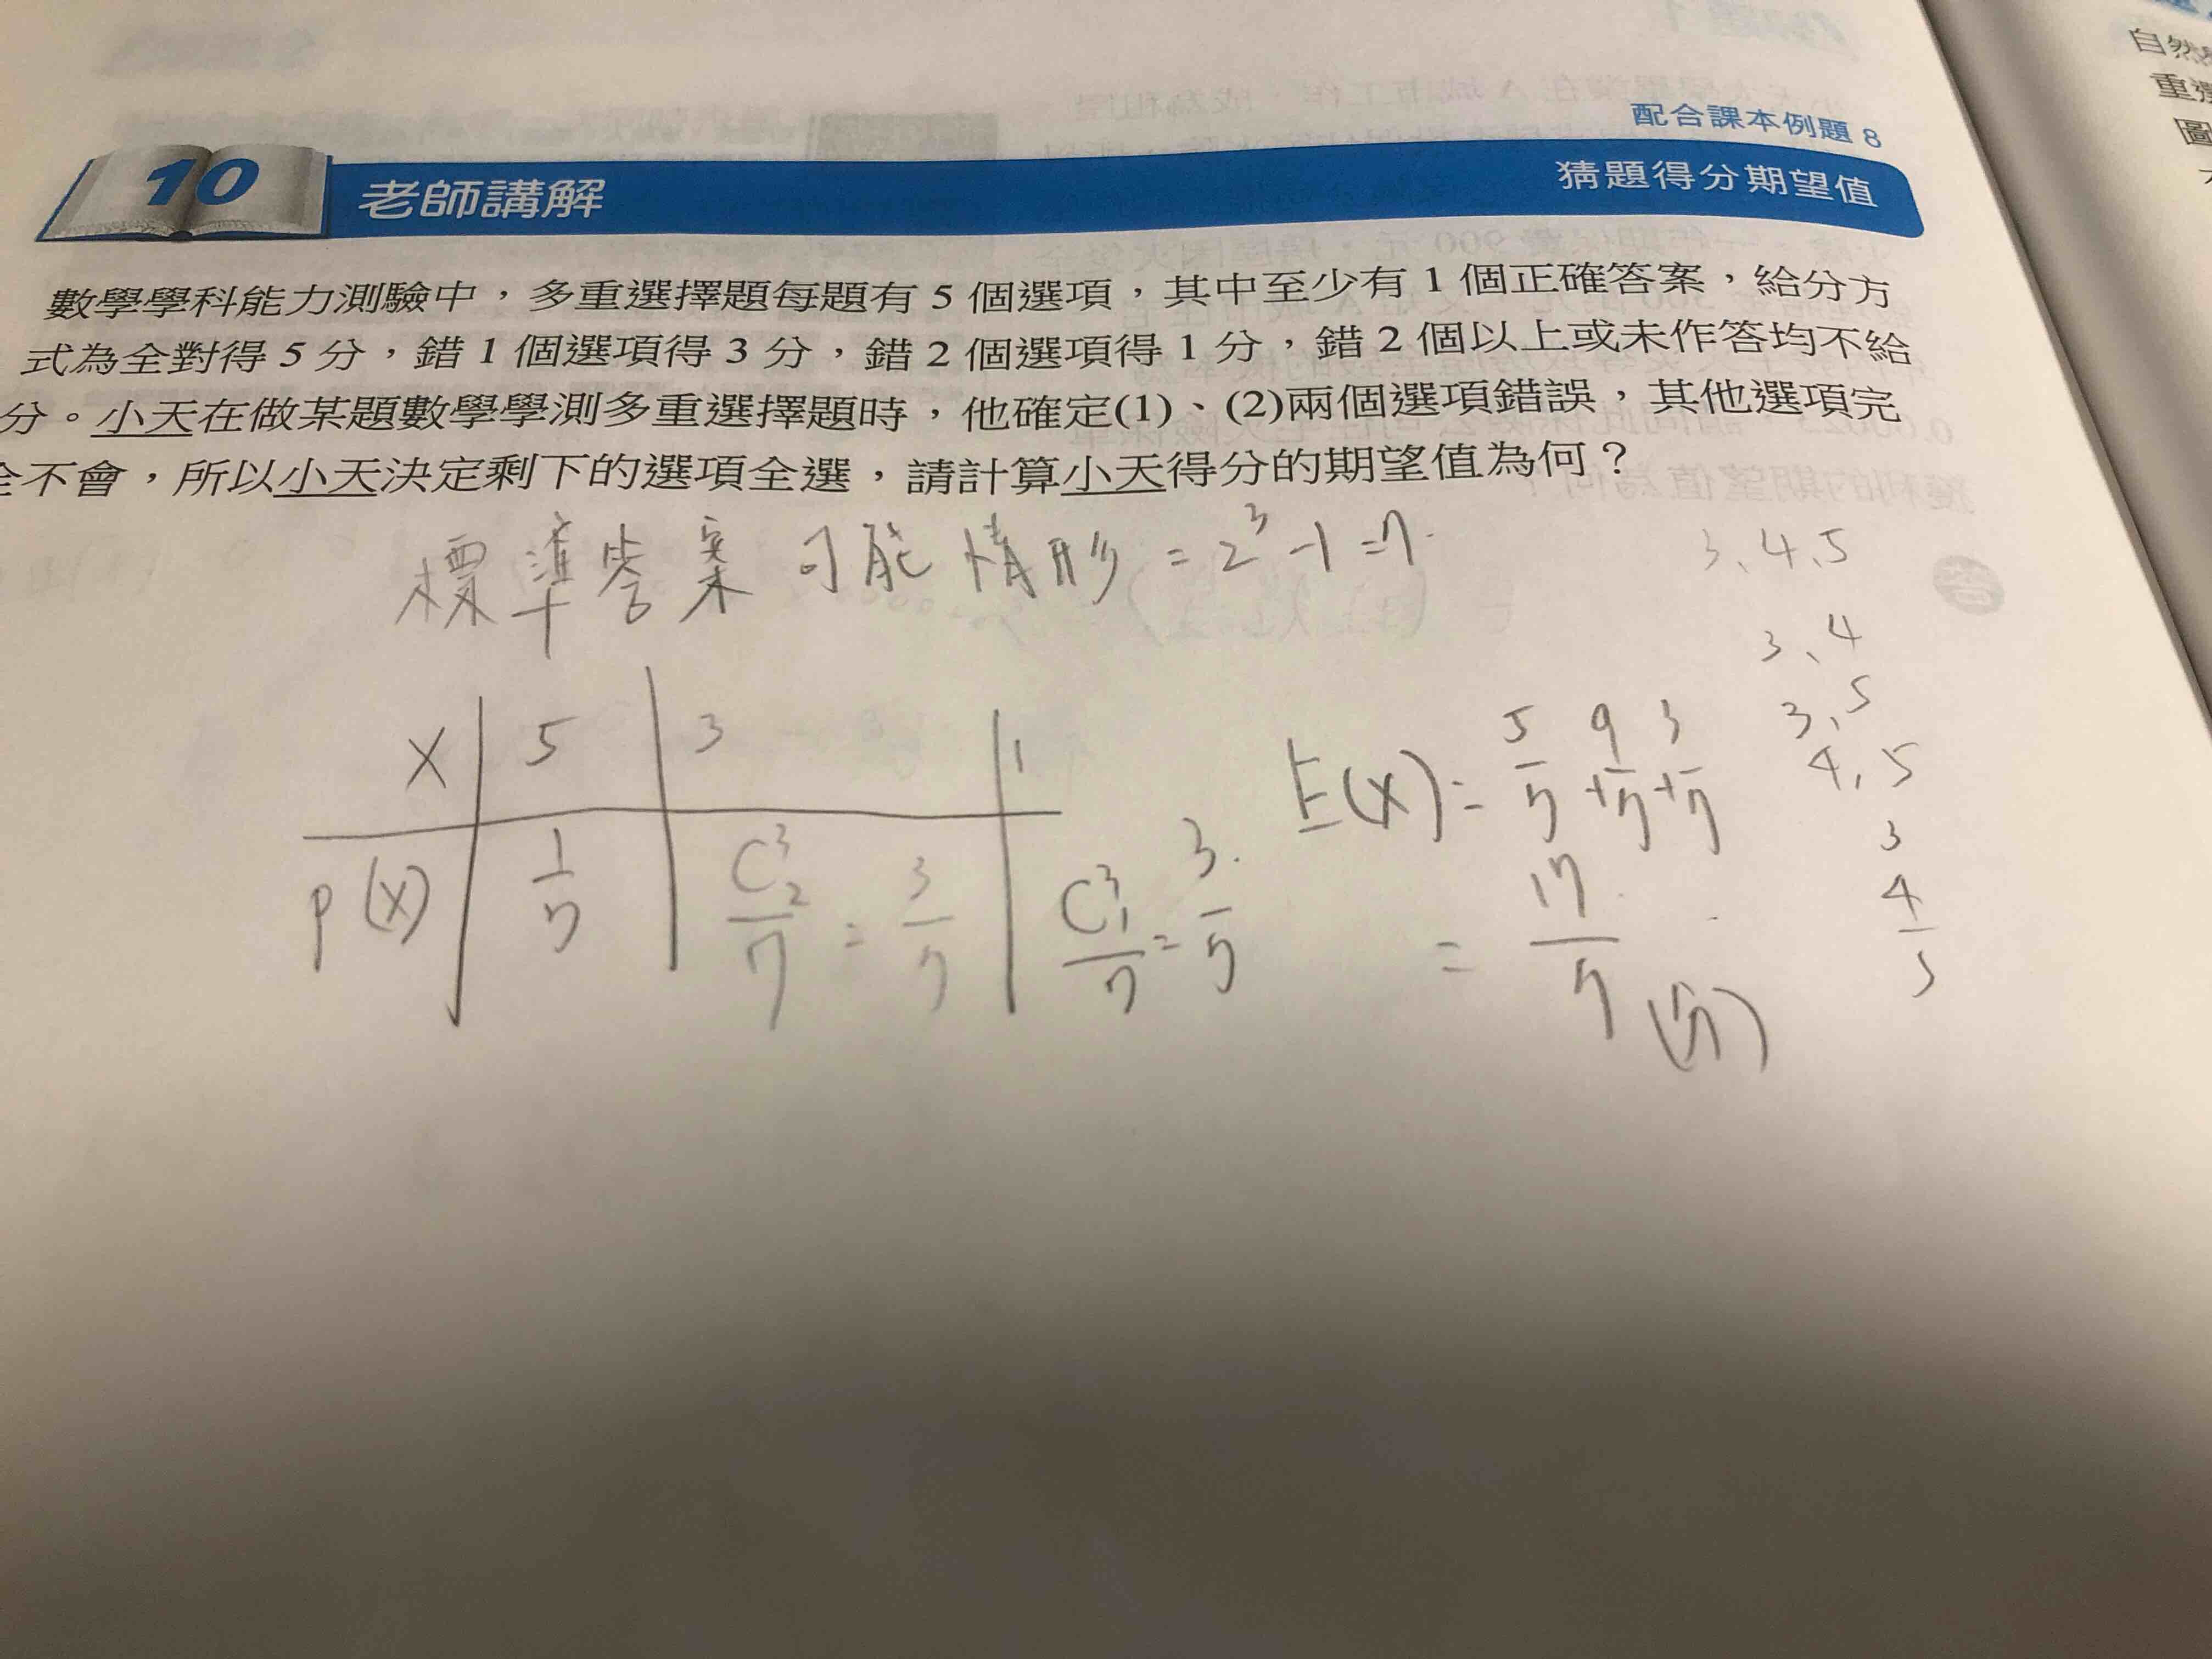 配合課本例題 8
10 老師講解 猜題得分期望值
數學學科能力測驗中，多重選擇題每題有 5 個選項，其中至少有 1 個正確答案，給分方
式為全對得 5 分，錯 1 個選項得 3 分，錯 2 個選項得 1 分，錯 2 個以上或未作答均不給
分。小天在做某題數學學測多重選擇題時，他確定(1)、(2)兩個選項錯誤，其他選項完
全不會，所以小天決定剩下的選項全選，請計算小天得分的期望值為何？
標準答案可能情形 = 2³-1=7
3、4、5
3、4
3、5
4、5
3
4
5
X 5 3 1
P(X) 1/7 C³₂/7 = 3/7 C³₁/7 = 3/7
E(X) = 5/7 + 9/7 + 3/7
= 17/7 (分)
自然
重
圖